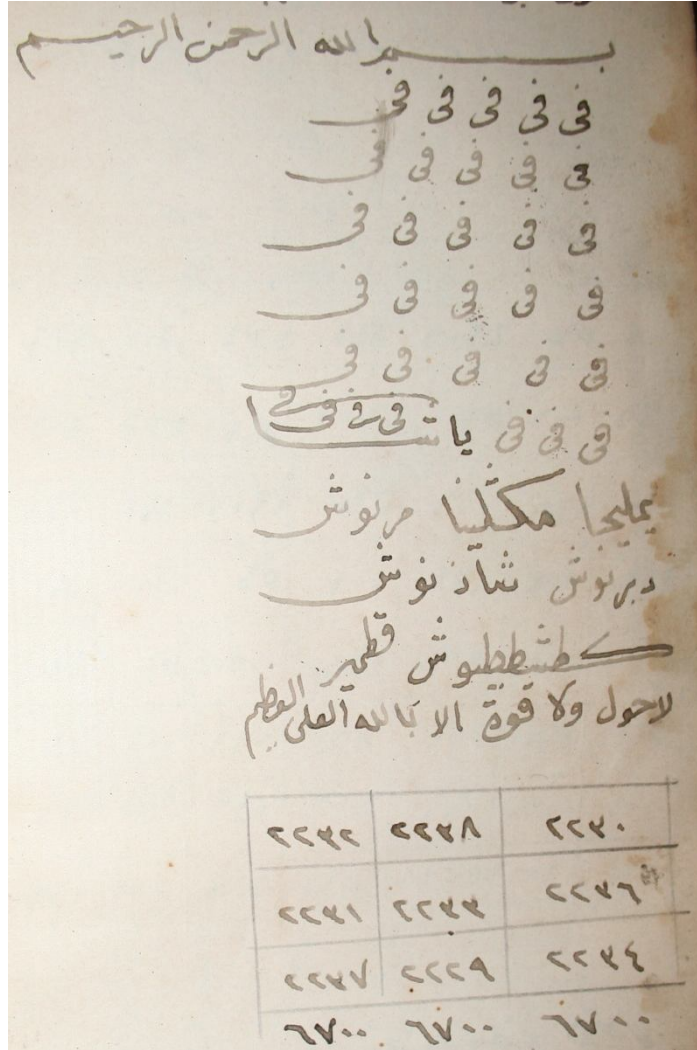 بسم الله الرحمن الرحيم
فى فى فى فى فى
فى فى فى فى فى
فى فى فى فى فى
فى فى فى فى فى
فى فى فى فى فى
فى فى فى يا
يمليحا مكثلينا مرنوش
دبرنوش شاذنوش
قطمير
لاحول ولا قوة الا بالله العلى العظيم
٢٢٣٠ ٢٢٣٨ ٢٢٣٢
٢٢٣٦ ٢٢٣٣ ٢٢٣١
٢٢٣٤ ٢٢٢٩ ٢٢٣٧
٦٧٠٠ ٦٧٠٠ ٦٧٠٠